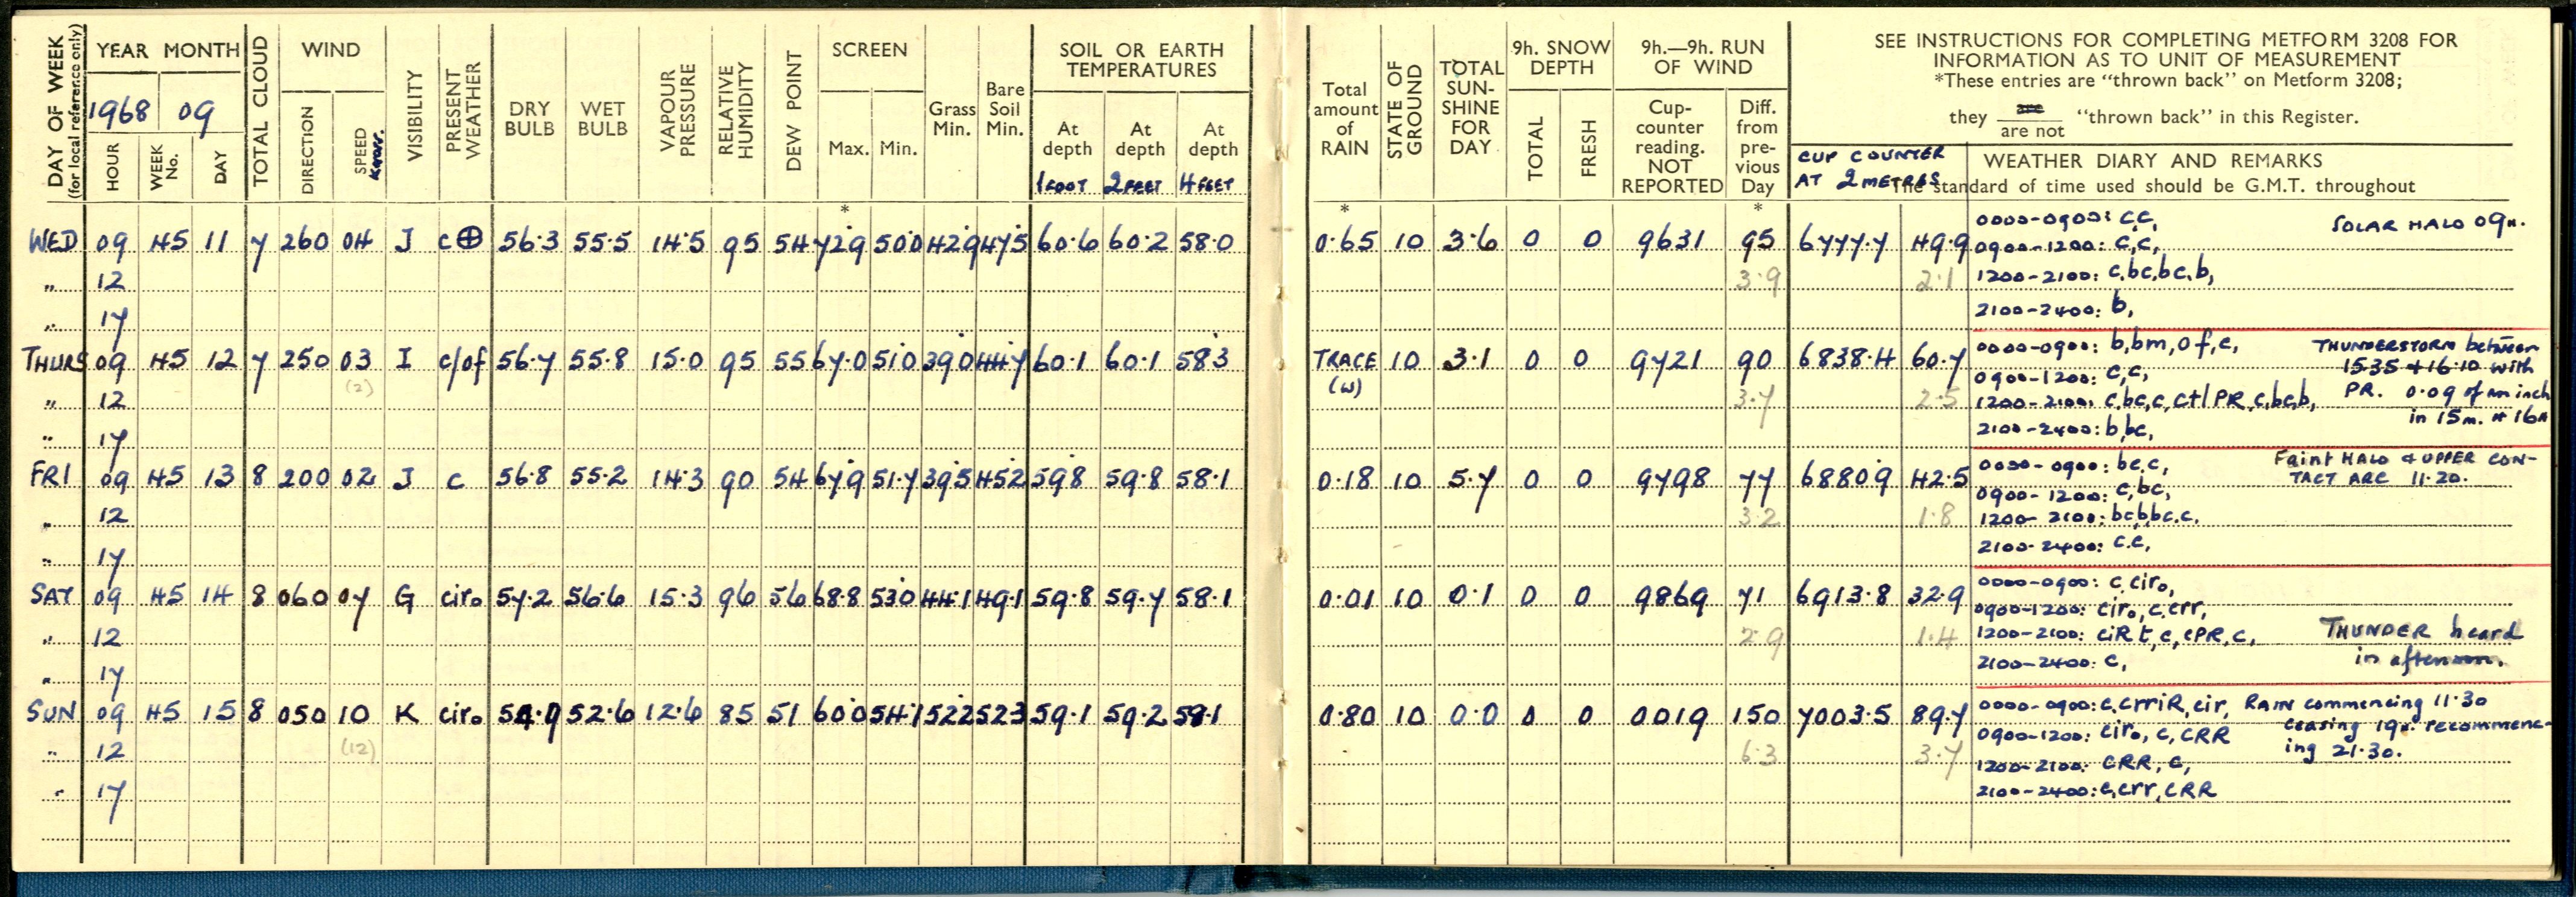 DAY OF WEEK
(for local reference only)
YEAR MONTH
1968 09
HOUR
WEEK No.
DAY
TOTAL CLOUD
WIND
DIRECTION
SPEED
KNOTS.
VISIBILITY
PRESENT WEATHER
DRY BULB
WET BULB
VAPOUR PRESSURE
RELATIVE HUMIDITY
DEW POINT
SCREEN
Max. Min.
Grass Min.
Bare Soil Min.
SOIL OR EARTH TEMPERATURES
At depth 1 FOOT
At depth 2 FEET
At depth 4 FEET
Total amount of RAIN
STATE OF GROUND
TOTAL SUN-SHINE FOR DAY
9h. SNOW DEPTH
TOTAL
FRESH
9h.—9h. RUN OF WIND
Cup-counter reading. NOT REPORTED
Diff. from pre-vious Day
SEE INSTRUCTIONS FOR COMPLETING METFORM 3208 FOR
INFORMATION AS TO UNIT OF MEASUREMENT
*These entries are "thrown back" on Metform 3208;
they are / are not "thrown back" in this Register.
CUP COUNTER
AT 2 METRES
WEATHER DIARY AND REMARKS
The standard of time used should be G.M.T. throughout
* * *
WED 09 45 11 7 260 04 J c⊕ 56.3 55.5 14.5 95 54 72.9 50.0 42.9 47.5 60.6 60.2 58.0 0.65 10 3.6 0 0 9631 95 6777.7 49.9
0000-0900: c,c,
SOLAR HALO 09H.
0900-1200: c,c,
,, 12 3.9 2.1
1200-2100: c,bc,bc,b,
,, 17
2100-2400: b,
THURS 09 45 12 7 250 03 I c/of 56.7 55.8 15.0 95 55 67.0 51.0 39.0 44.7 60.1 60.1 58.3 TRACE 10 3.1 0 0 9721 90 6838.4 60.7
(2)
(W)
0000-0900: b,bm,of,c,
THUNDERSTORM between
15.35 + 16.10 with
PR. 0.09 of an inch
in 15m. at 16H
0900-1200: c,c,
,, 12 3.7 2.5
1200-2100: c,bc,c,ctlPR,c,bc,b,
,, 17
2100-2400: b,bc,
FRI 09 45 13 8 200 02 J c 56.8 55.2 14.3 90 54 67.9 51.7 39.5 45.2 59.8 59.8 58.1 0.18 10 5.7 0 0 9798 77 6880.9 42.5
0000-0900: bc,c,
Faint HALO & UPPER CON-
TACT ARC 11.20.
0900-1200: c,bc,
,, 12 3.2 1.8
1200-2100: bc,b,bc,c,
,, 17
2100-2400: c,c,
SAT 09 45 14 8 060 07 G ciro 57.2 56.6 15.3 96 56 68.8 53.0 44.1 49.1 59.8 59.7 58.1 0.01 10 0.1 0 0 9869 71 6913.8 32.9
0000-0900: c,ciro,
0900-1200: ciro,c,crr,
,, 12 2.9 1.4
1200-2100: ciRt,c,cPR,c,
THUNDER heard
in afternoon.
,, 17
2100-2400: c,
SUN 09 45 15 8 050 10 K ciro 54.9 52.6 12.6 85 51 60.0 54.1 52.2 52.3 59.1 59.2 58.1 0.80 10 0.0 0 0 0019 150 7003.5 89.7
(12)
0000-0900: c,crriR,cir,
RAIN commencing 11.30
ceasing 19H. recommenc-
ing 21.30.
0900-1200: ciro,c,cRR
,, 12 6.3 3.7
1200-2100: cRR,c,
,, 17
2100-2400: c,crr,cRR